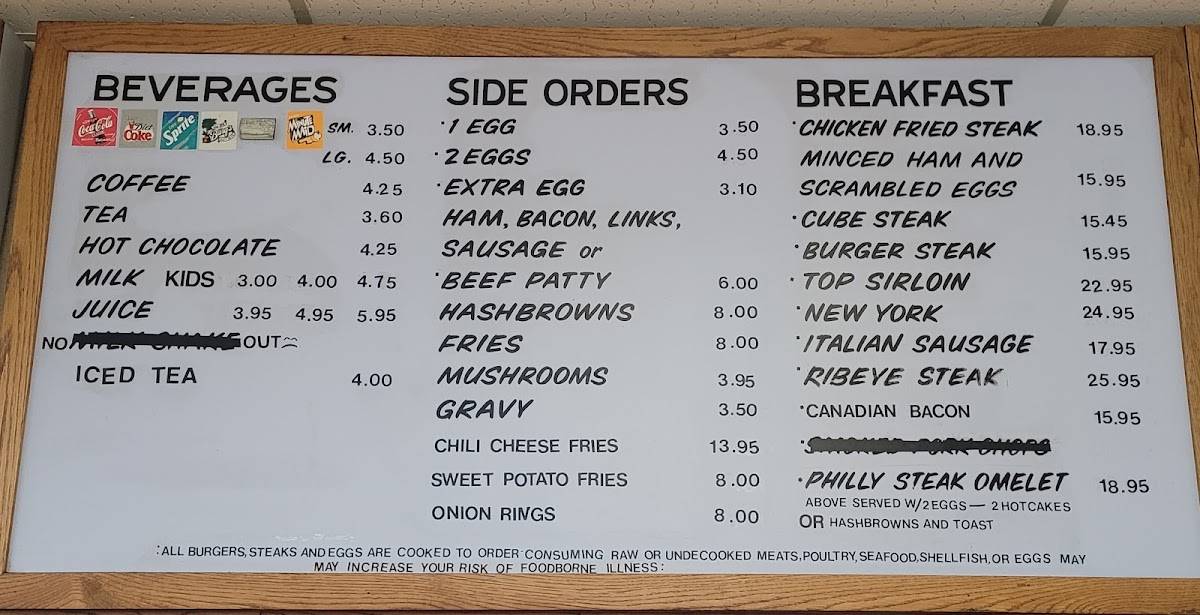 BEVERAGES
Coca-Cola Diet Coke Sprite Minute Maid SM. 3.50
LG. 4.50
COFFEE 4.25
TEA 3.60
HOT CHOCOLATE 4.25
MILK KIDS 3.00 4.00 4.75
JUICE 3.95 4.95 5.95
NO OUT
ICED TEA 4.00
SIDE ORDERS
·1 EGG 3.50
·2 EGGS 4.50
·EXTRA EGG 3.10
HAM, BACON, LINKS,
SAUSAGE or
·BEEF PATTY 6.00
HASHBROWNS 8.00
FRIES 8.00
MUSHROOMS 3.95
GRAVY 3.50
CHILI CHEESE FRIES 13.95
SWEET POTATO FRIES 8.00
ONION RINGS 8.00
BREAKFAST
·CHICKEN FRIED STEAK 18.95
MINCED HAM AND
SCRAMBLED EGGS 15.95
·CUBE STEAK 15.45
·BURGER STEAK 15.95
·TOP SIRLOIN 22.95
·NEW YORK 24.95
·ITALIAN SAUSAGE 17.95
·RIBEYE STEAK 25.95
·CANADIAN BACON 15.95
·SMOKED PORK CHOPS
·PHILLY STEAK OMELET 18.95
ABOVE SERVED W/2 EGGS — 2 HOTCAKES
OR HASHBROWNS AND TOAST
:ALL BURGERS, STEAKS AND EGGS ARE COOKED TO ORDER·CONSUMING RAW OR UNDECOOKED MEATS,POULTRY,SEAFOOD,SHELLFISH,OR EGGS MAY
MAY INCREASE YOUR RISK OF FOODBORNE ILLNESS: